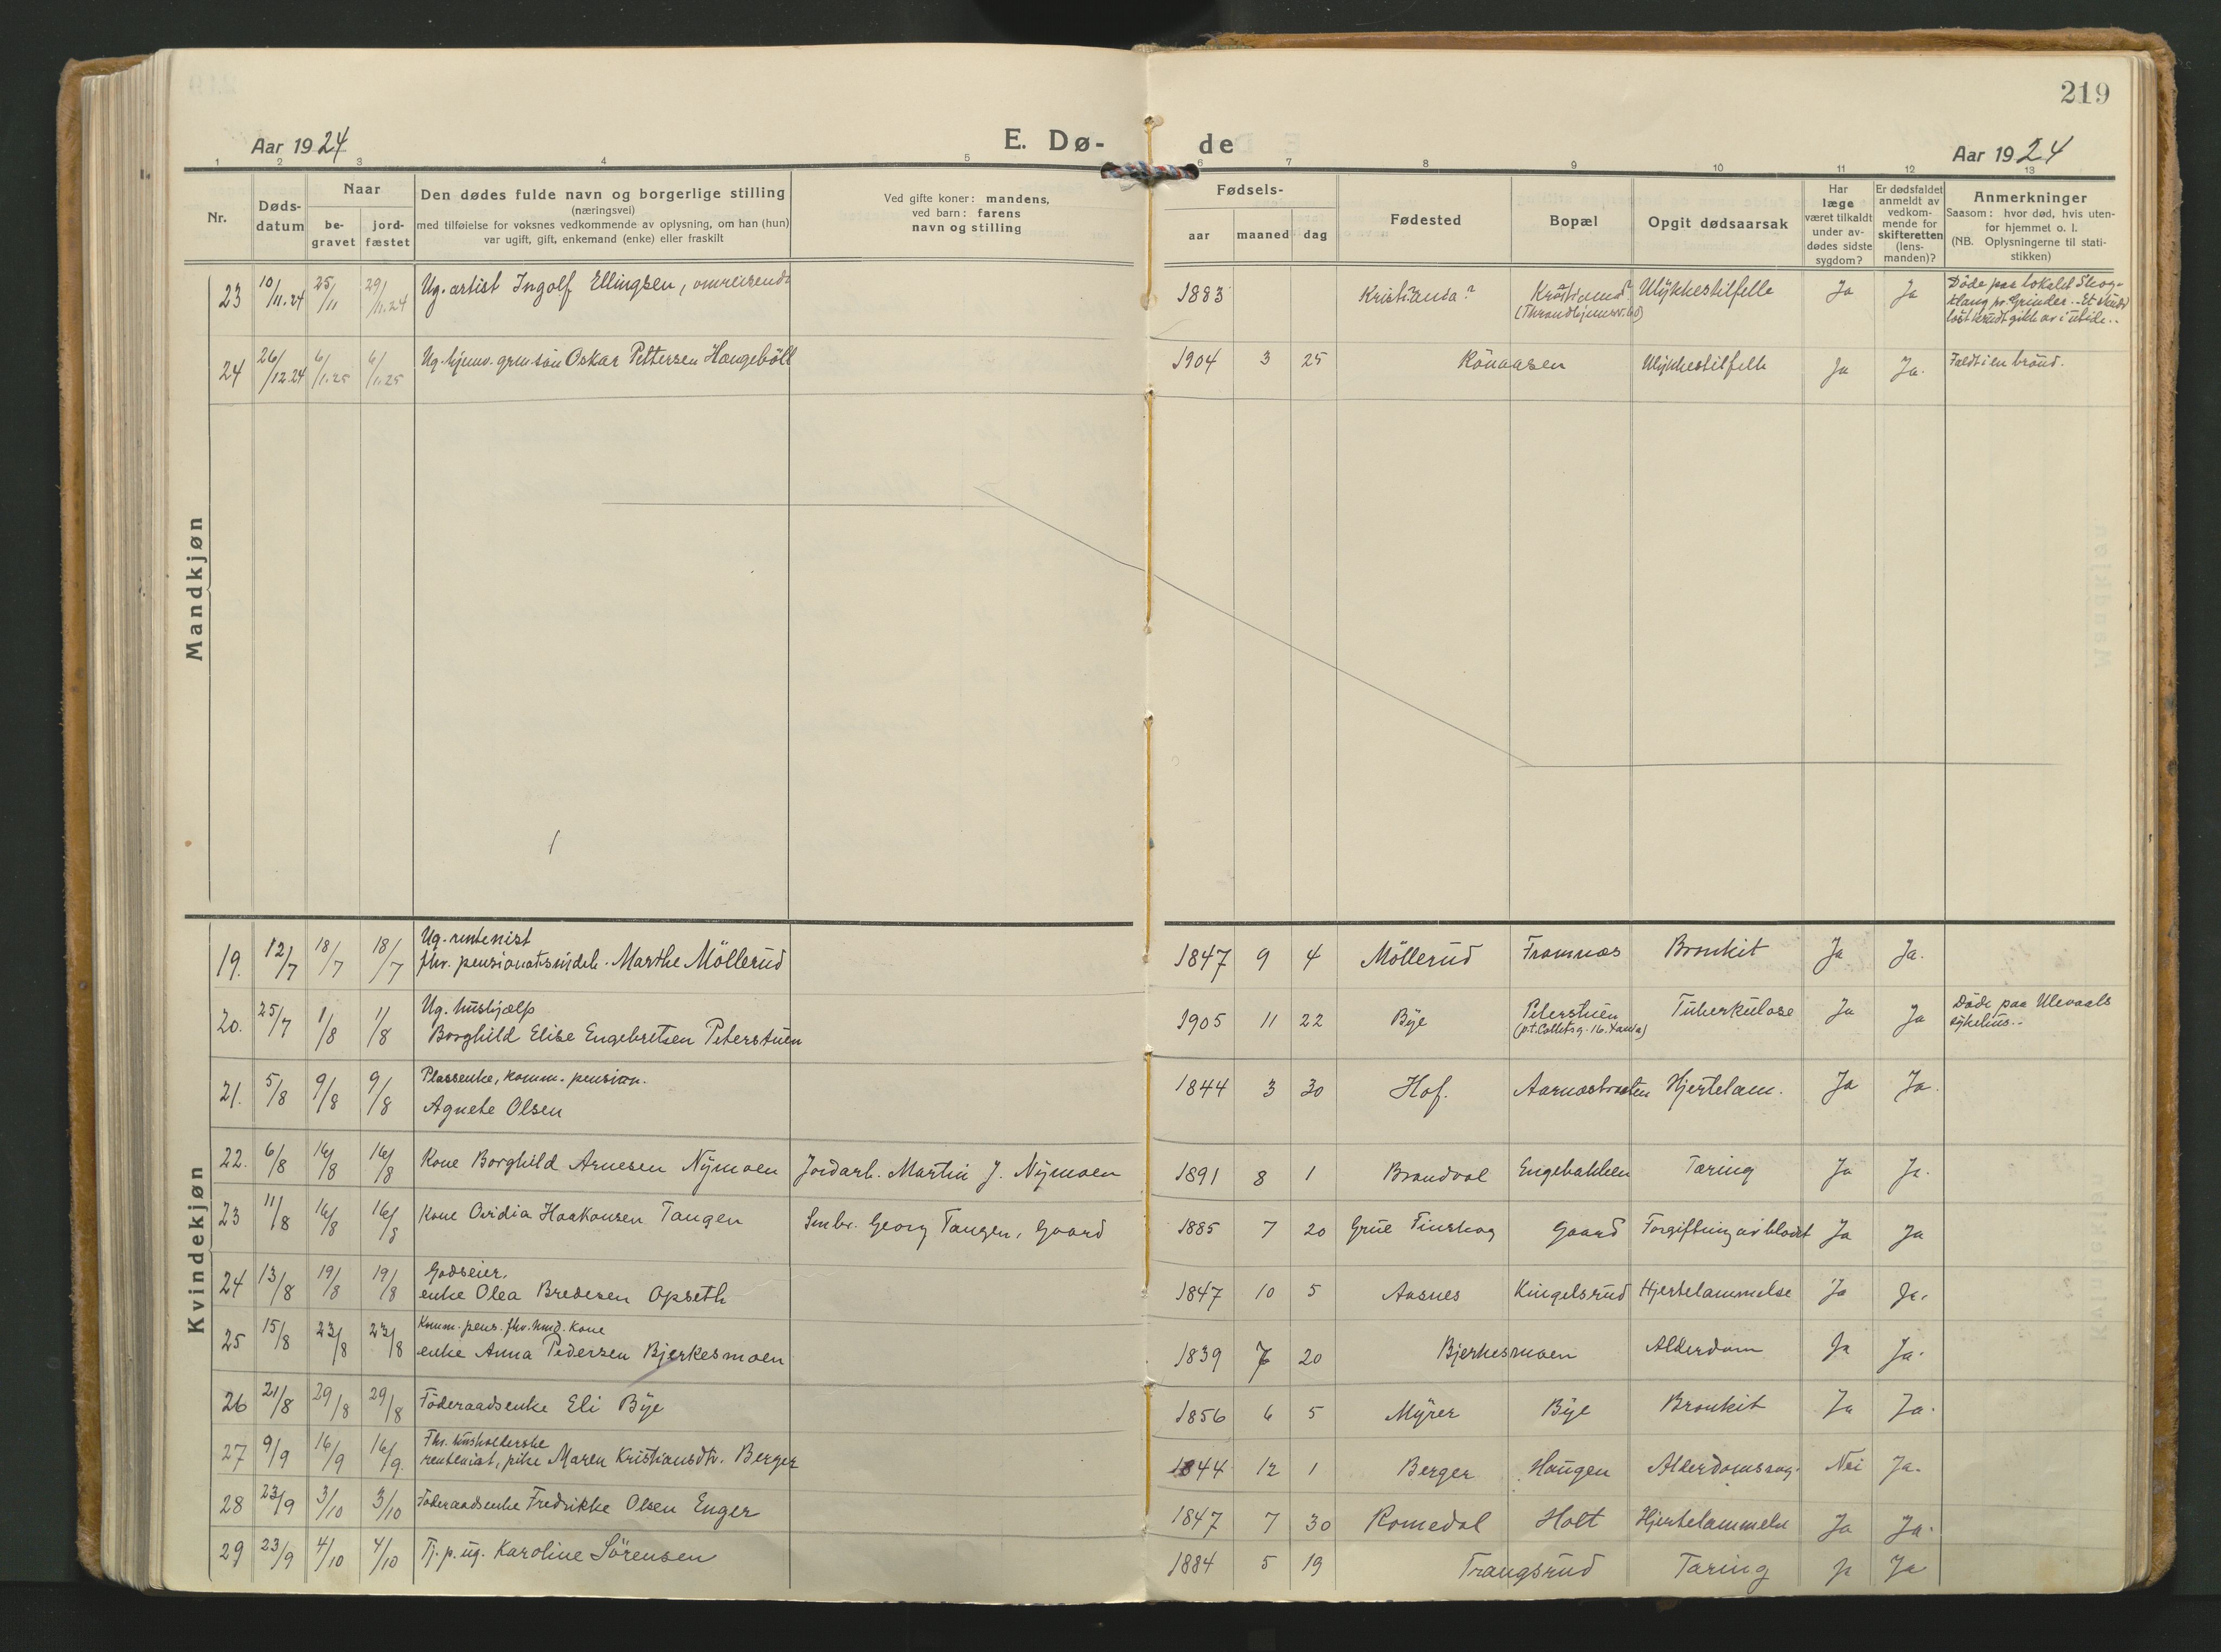 219
Aar 1924 E. Dø- de Aar 1924
1 2 3 4 5 6 7 8 9 10 11 12 13
Nr.
Døds-
datum
Naar
be-
gravet
jord-
fæstet
Den dødes fulde navn og borgerlige stilling
(næringsvei)
med tilføielse for voksnes vedkommende av oplysning, om han (hun)
var ugift, gift, enkemand (enke) eller fraskilt
Ved gifte koner: mandens,
ved barn: farens
navn og stilling
Fødsels-
aar maaned dag
Fødested
Bopæl
Opgit dødsaarsak
Har
læge
været tilkaldt
under av-
dødes sidste
sygdom?
Er dødsfaldet
anmeldt av
vedkom-
mende for
skifteretten
(lens-
manden)?
Anmerkninger
Saasom: hvor død, hvis uten-
for hjemmet o. l.
(NB. Oplysningerne til stati-
stikken)
Mandkjøn
23 10/11.24 25/11 29/11.24 Ug. artist Ingolf Ellingsen, omreisende 1883 Kristiania? Kristiania? (Throndhjemsv. 60) Ulykkestilfelle Ja Ja Døde paa lokalet Skog-
klang pr. Grinder. Et skudd
løst krudt gikk av i utide..
24 26/12.24 6/1.25 6/1.25 Ug. hjemv. grm. søn Oskar Pettersen Haugebøll 1904 3 25 Rønaasen Ulykkestilfelle Ja Ja. Faldt i en brønd.
Kvindekjøn
19. 12/7 18/7 18/7 Ug. rentenist
fhv. pensionatsindeh. Marthe Möllerud 1847 9 4 Möllerud Framnæs Bronkit Ja Ja.
20. 25/7 1/8 1/8 Ug. hushjælp
Borghild Elise Engebretsen Peterstuen 1905 11 22 Bye Peterstuen (p.t. Colletsg. 16. Xania) Tuberkulose Ja Ja Døde paa Ulevaals
sykehus..
21. 5/8 9/8 9/8 Plassenke, komm. pension.
Agnete Olsen 1844 3 30 Hof. Aarnæsbraaten Hjertelam. Ja Ja.
22. 6/8 16/8 16/8 Kone Borghild Arnesen Nymoen Jordarb. Martin J. Nymoen 1891 8 1 Brandval Engebakken Tæring Ja Ja.
23 11/8 16/8 16/8 Kone Ovidia Haakonsen Tangen Smbr. Georg Tangen, Gaard 1885 7 20 Grue Finskog Gaard Forgiftning av blodet Ja Ja
24 13/8 19/8 19/8 Godseier.
enke Olea Bredesen Opseth 1847 10 5 Aasnes Kingelsrud Hjertelammelse Ja Ja.
25 15/8 23/8 23/8 Komm. pens. fhv. hmd. kone
enke Anna Pedersen Bjerkesmoen 1839 7 20 Bjerkesmoen Alderdom Ja Ja.
26 21/8 29/8 29/8 Føderaadsenke Eli Bye 1856 6 5 Myrer Bye Bronkit Ja Ja.
27 9/9 16/9 16/9. Fhv. husholderske
rentenist, pike Maren Kristiansdtr. Berger 1844 12 1 Berger Haugen Alderdomssvag. Nei Ja.
28 23/9 3/10 3/10 Føderaadsenke Fredrikke Olsen Enger 1847 7 30 Romedal Holt Hjertelammelse Ja Ja.
29 23/9 4/10 4/10 Tj. p. ug. Karoline Sörensen 1884 5 19 Trangsrud Tæring Ja Ja